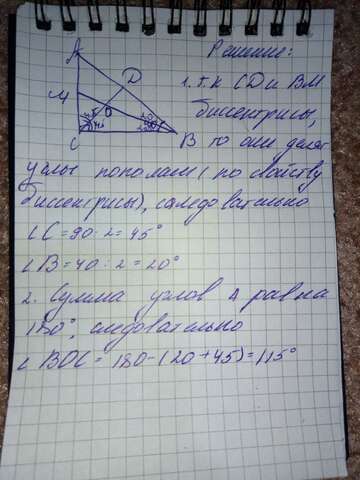 A
Решение:
D
1. т.к CD и BM
M
биссектрисы,
O
45° 45°
20° 20°
C
B то они делят
углы пополам (по свойству
биссектрисы), следовательно
∠C = 90 : 2 = 45°
∠B = 40 : 2 = 20°
2. Сумма углов Δ равна
180°, следовательно
∠BOC = 180-(20+45)=115°